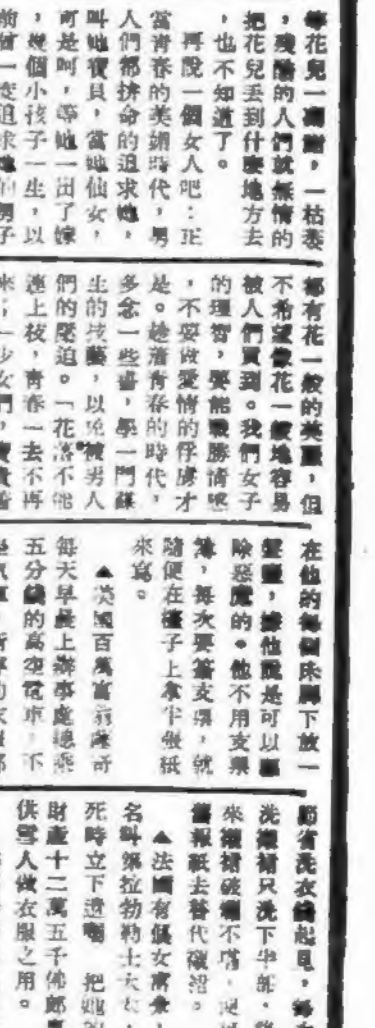 等花兒一凋謝，一枯萎
，殘酷的人們就無情的
把花兒丟到什麼地方去
，也不知道了。
再說一個女人吧：正
當青春的美媚時代，男
人們都拚命的追求她，
叫她寶貝，當她仙女，
可是呵，等她一出了嫁
，幾個小孩子一生，以
前曾一度追求她的男子
都有花一般的美麗，但
不希望像花一般地容易
被人們買到。我們女子
的理智，要能戰勝情感
，不要做愛情的俘虜才
是。趁着青春的時代，
多念一些書，學一門謀
生的技藝，以免被男人
們的壓迫。「花落不能
連上枝，青春一去不再
來；」少女們，
在他的每個床脚下放一
，據他說是可以
除惡魔的。他不用支票
簿，每次要簽支票，就
隨便在檯子上拿半張紙
來寫。
▲英國百萬富翁
每天早晨上辦事處總乘
五分錢的高空電車，不
節省洗衣錢起見，
洗襯裙只洗下半部，
來襯裙破爛不堪，便
舊報紙去替代襯裙。
▲法國有個女富
名叫 拉勃勒士夫
死時立下遺囑 把她
財產十二萬五千佛郎
供雪人做衣服之用。